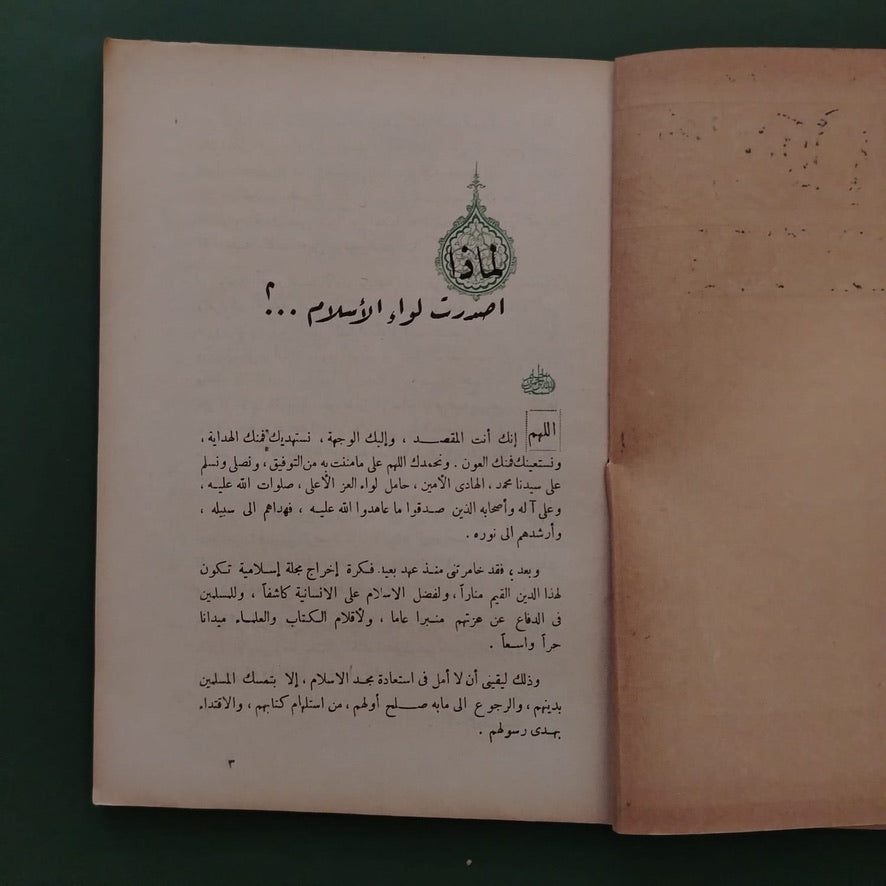 لماذا
اصدرت لواء الأسلام ...؟
اللهم إنك أنت المقصـــد ، وإليك الوجهة ، نستهديك فمنك الهداية ،
ونستعينك فمنك العون . ونحمدك اللهم على مامننت به من التوفيق ، ونصلى ونسلم
على سيدنا محمد ، الهادى الأمين ، حامل لواء العز الأعلى ، صلوات الله عليـه ،
وعلى آله وأصحابه الذين صـدقوا ما عاهدوا الله عليـه ، فهداهم الى سبيله ،
وأرشدهم الى نوره .
وبعد ؛ فقد خامرتنى منـذ عهد بعيد فـكرة إخراج مجلة إسـلامية تـكون
لهذا الدين القيم مناراً ، ولفضل الاسلام على الانسانية كاشفاً ، وللمسلمين
فى الدفاع عن عزتهم منـبرا عاما ، ولأقلام الـكتاب والعلمـاء ميدانا
حراً واسـعاً .
وذلك ليقينى أن لا أمل فى استعادة مجـد الاسلام ، إلا بتمسك المسلمين
بدينهم ، والرجوع الى مابه صـــلح أولهم ، من استلهام كتابهم ، والاقتداء
بهـدى رسولهم .
٣